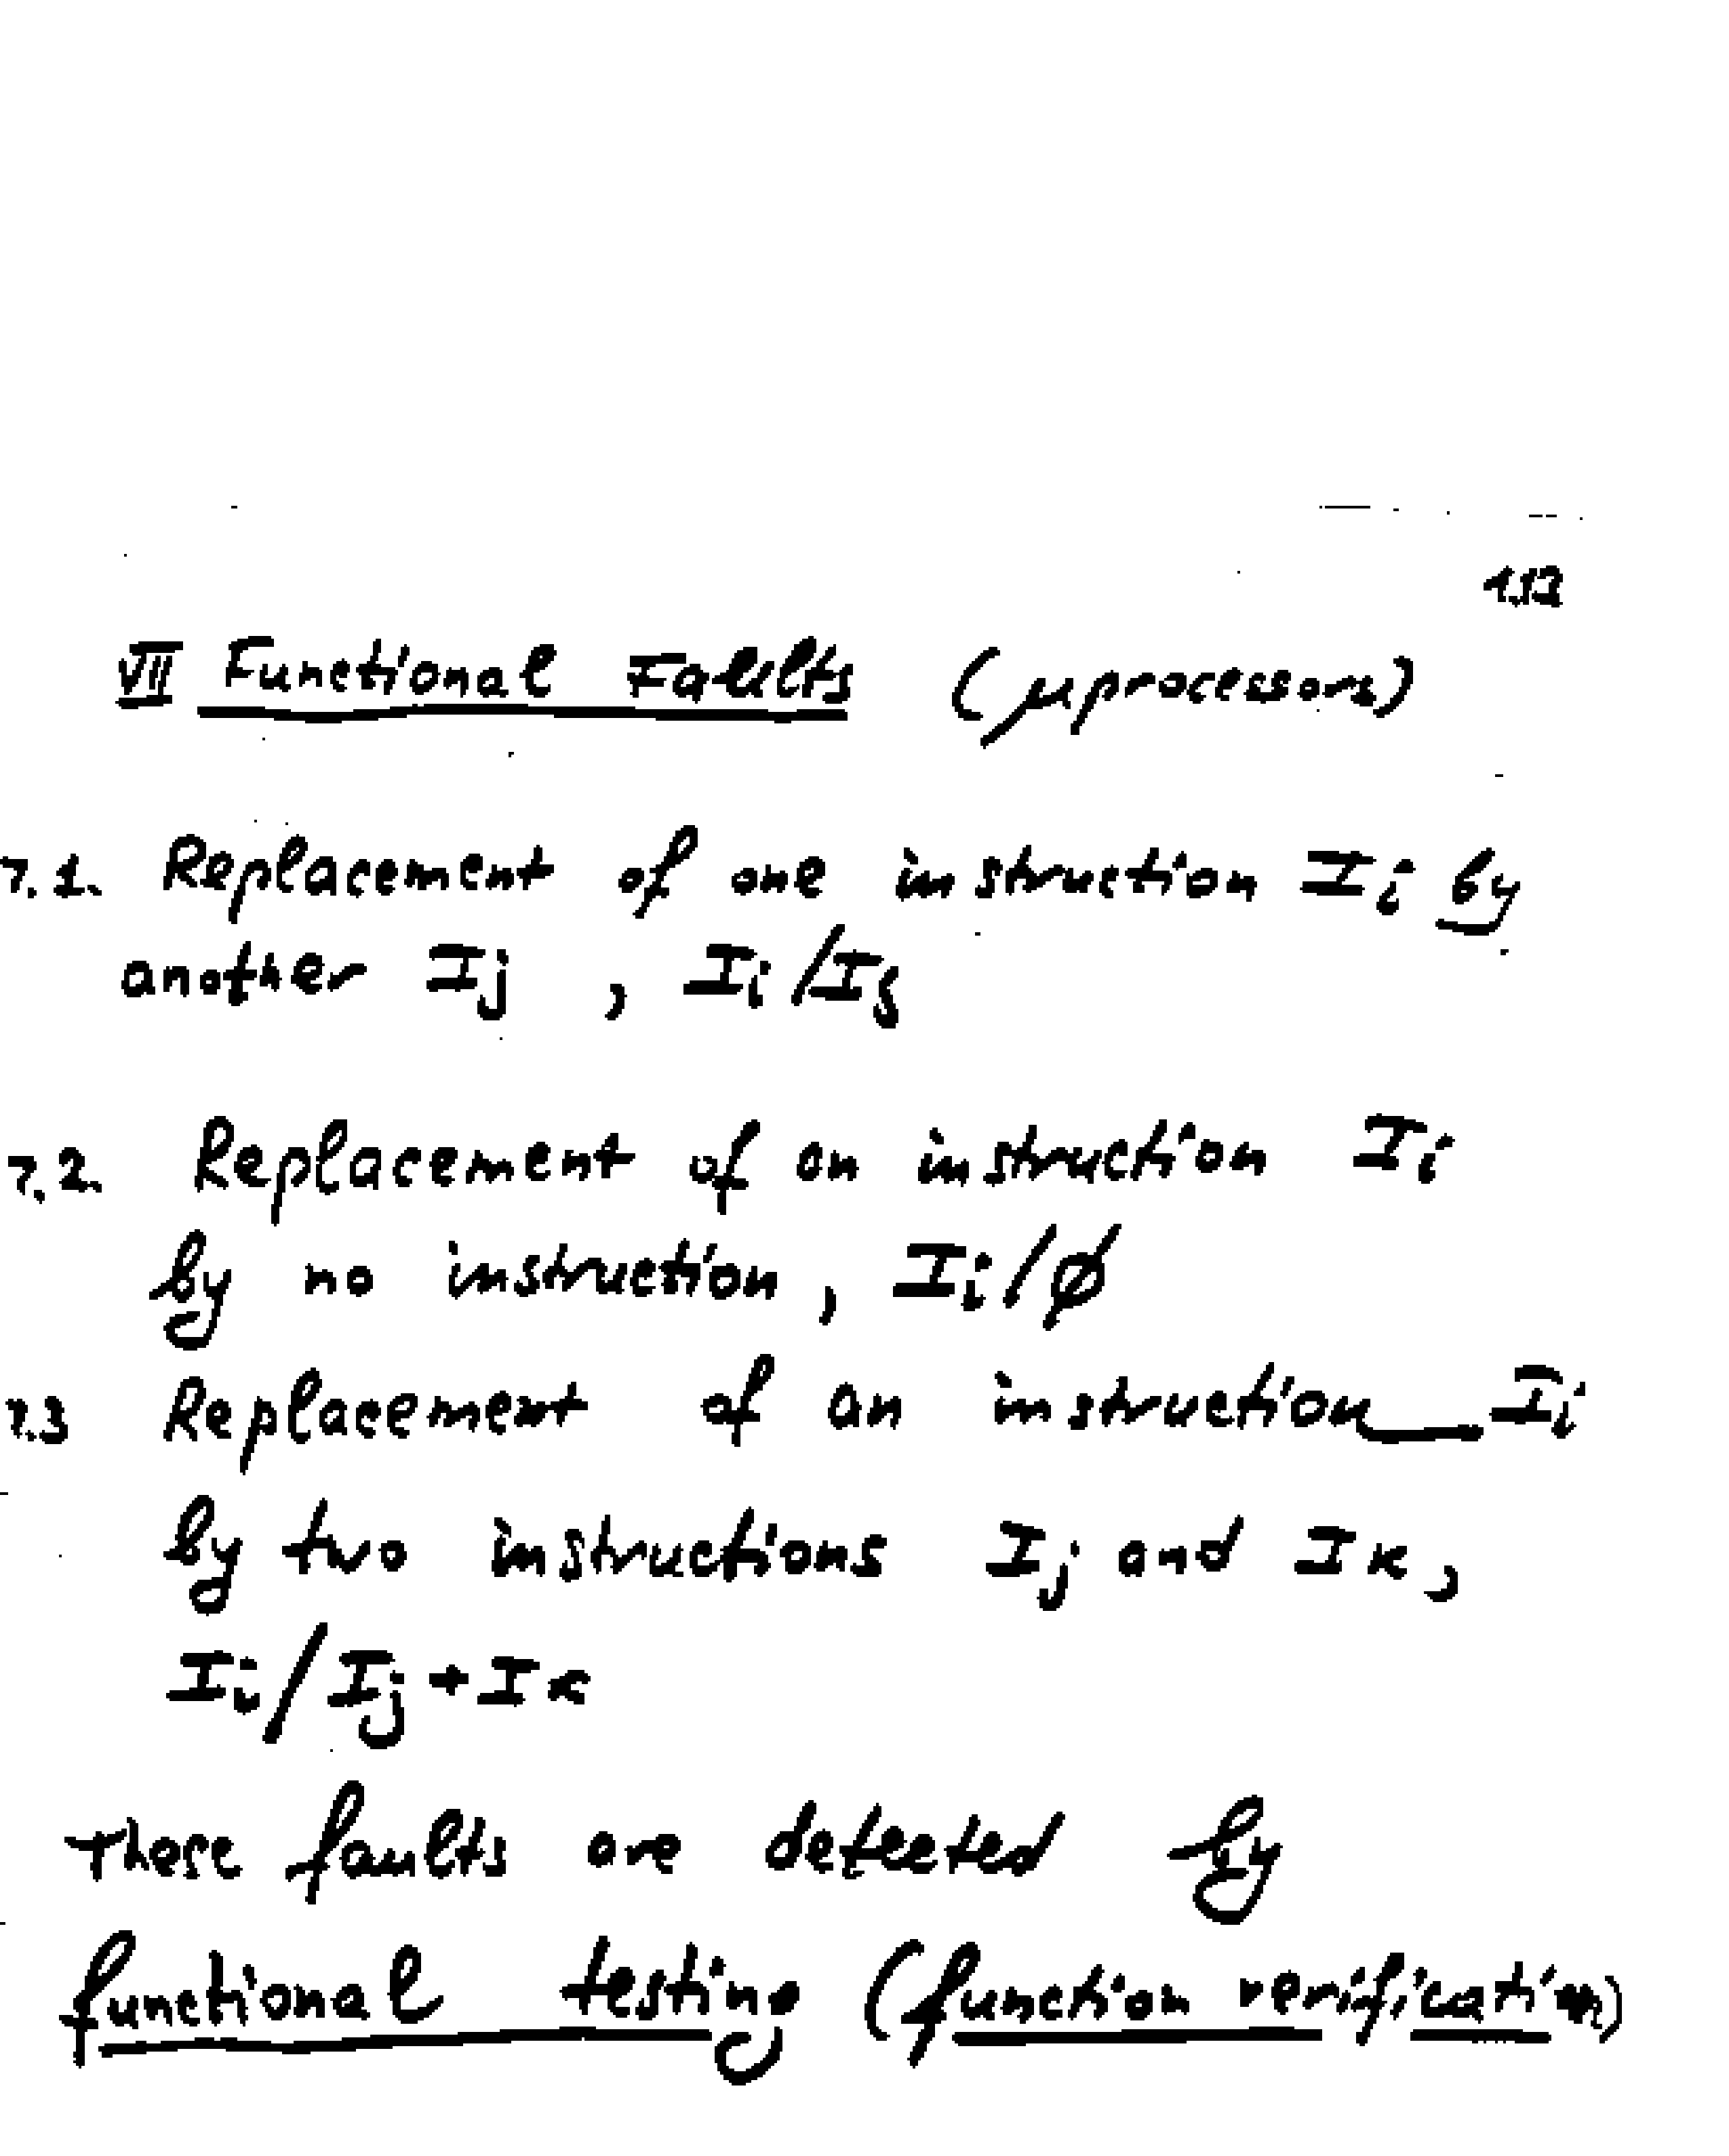 152
VII Functional Faults (μprocessors)
7.1. Replacement of one instruction Ii by
another Ij , Ii/Ij
7.2. Replacement of an instruction Ii
by no instruction, Ii/ø
7.3 Replacement of an instruction Ii
by two instructions Ij and Ik,
Ii/Ij+Ik
These faults are detected by
functional testing (function verification)